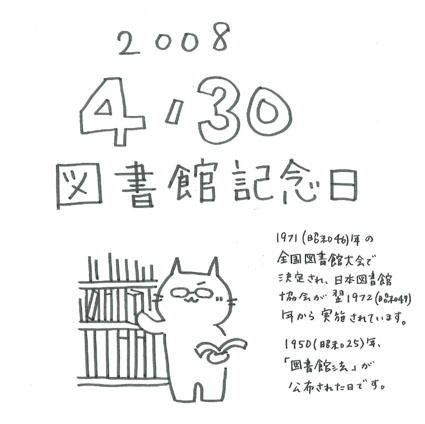 2008
4.30
図書館記念日
1971(昭和46)年の
全国図書館大会で
決定され、日本図書館
協会が翌1972(昭和47)
年から実施されています。
1950(昭和25)年、
「図書館法」が
公布された日です。